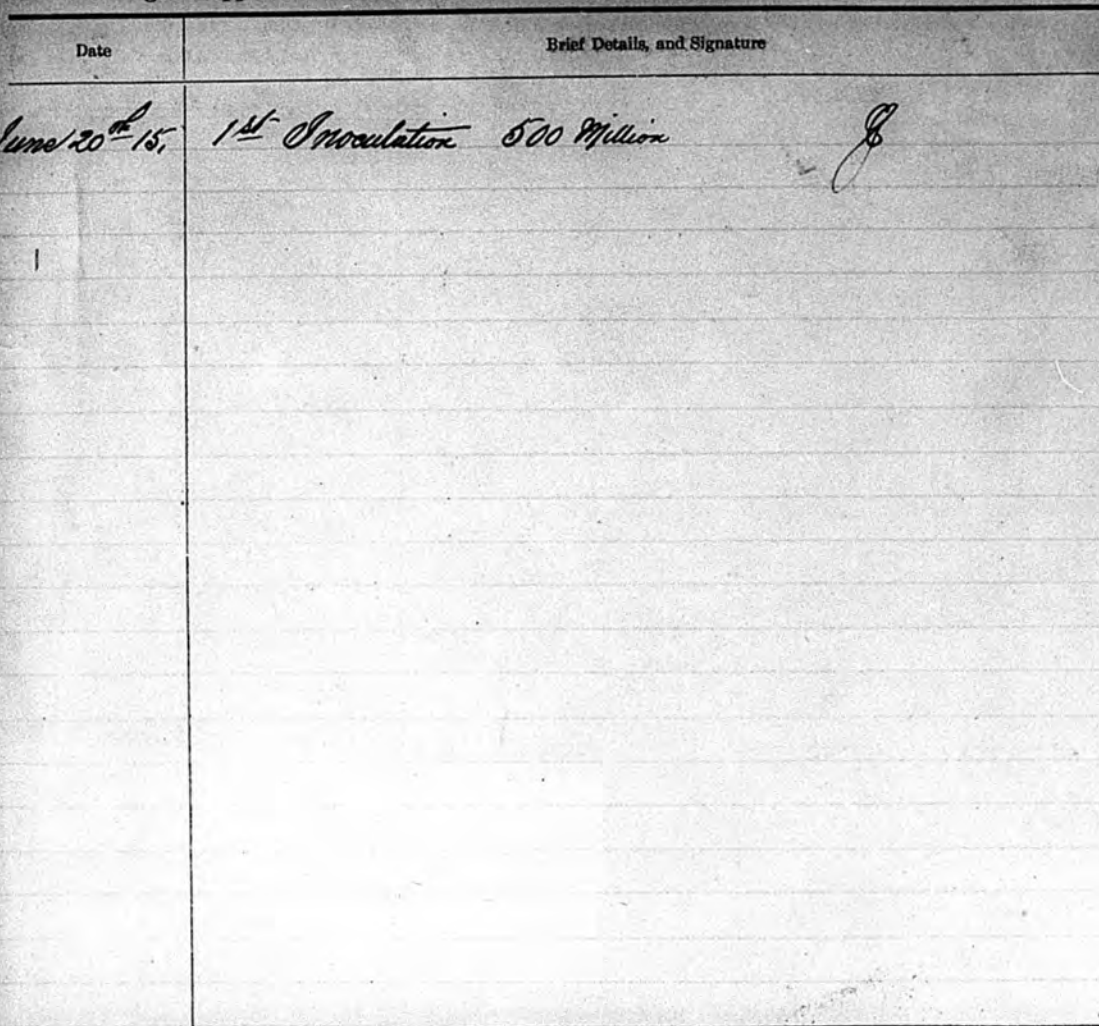 Date Brief Details, and Signature
June 20th 15, 1st Inoculation 500 Million